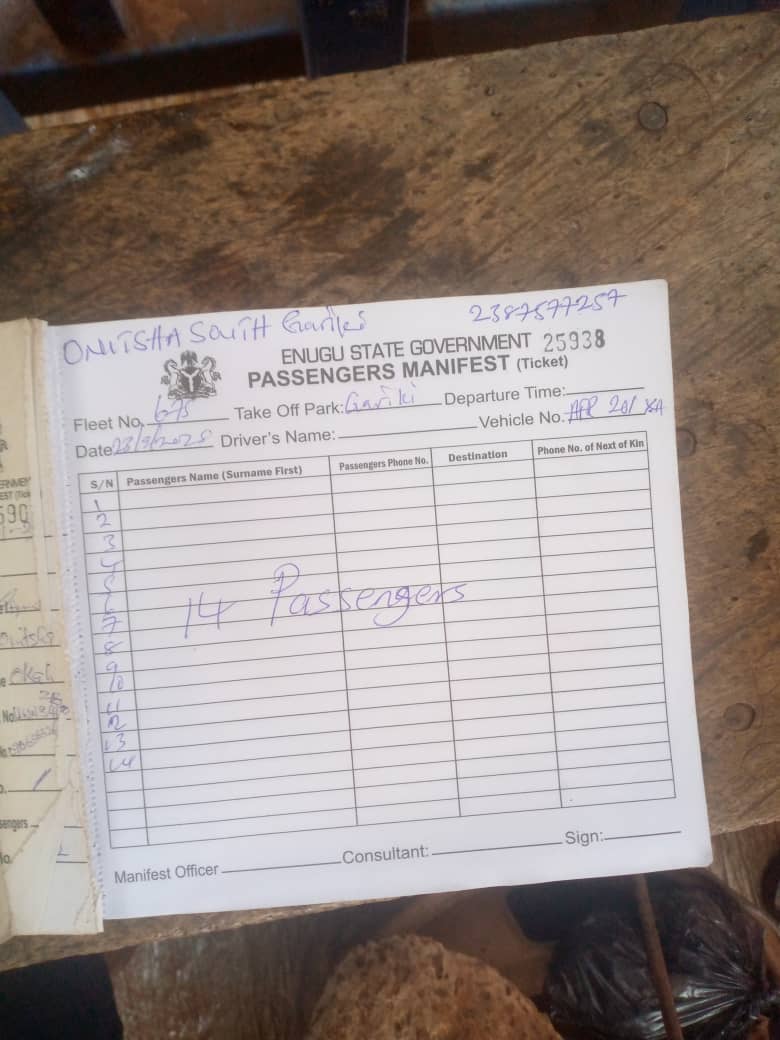 ONITSHA SOUTH Gariki 2387577257
ENUGU STATE GOVERNMENT 25938
PASSENGERS MANIFEST (Ticket)
Fleet No. 675 Take Off Park: Gariki Departure Time:
Date 23/9/2025 Driver's Name: Vehicle No. 201 XA
S/N Passengers Name (Surname First) Passengers Phone No. Destination Phone No. of Next of Kin
1
2
3
4
5
6
7
14 Passengers
8
9
10
11
12
13
14
Manifest Officer Consultant: Sign: